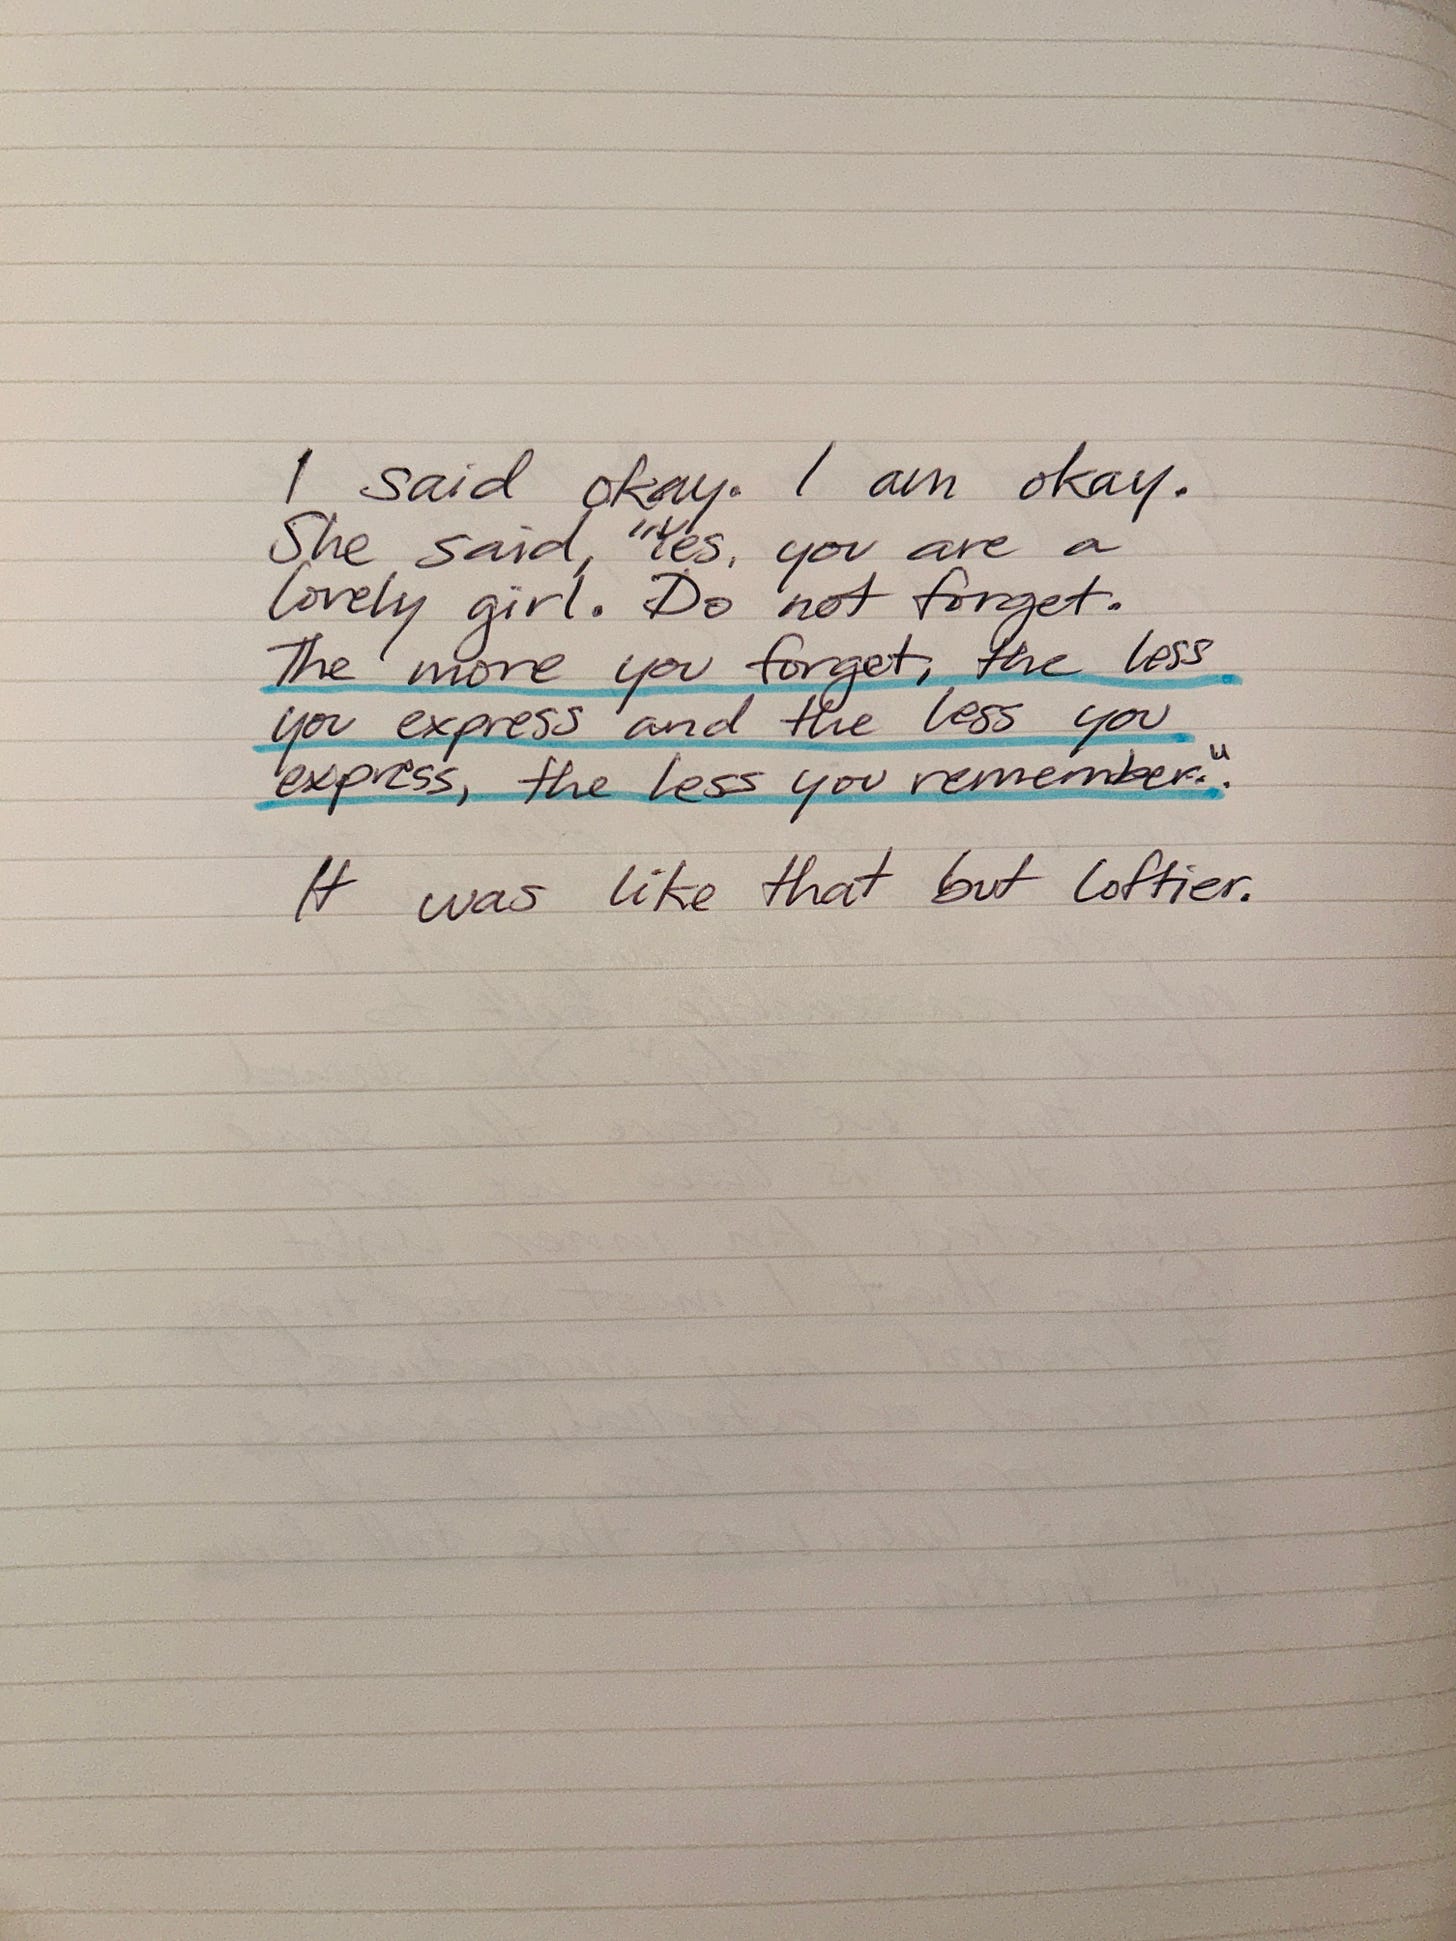 I said okay. I am okay.
She said, "Yes, you are a
lovely girl. Do not forget.
The more you forget, the less
you express and the less you
express, the less you remember.".
It was like that but loftier.